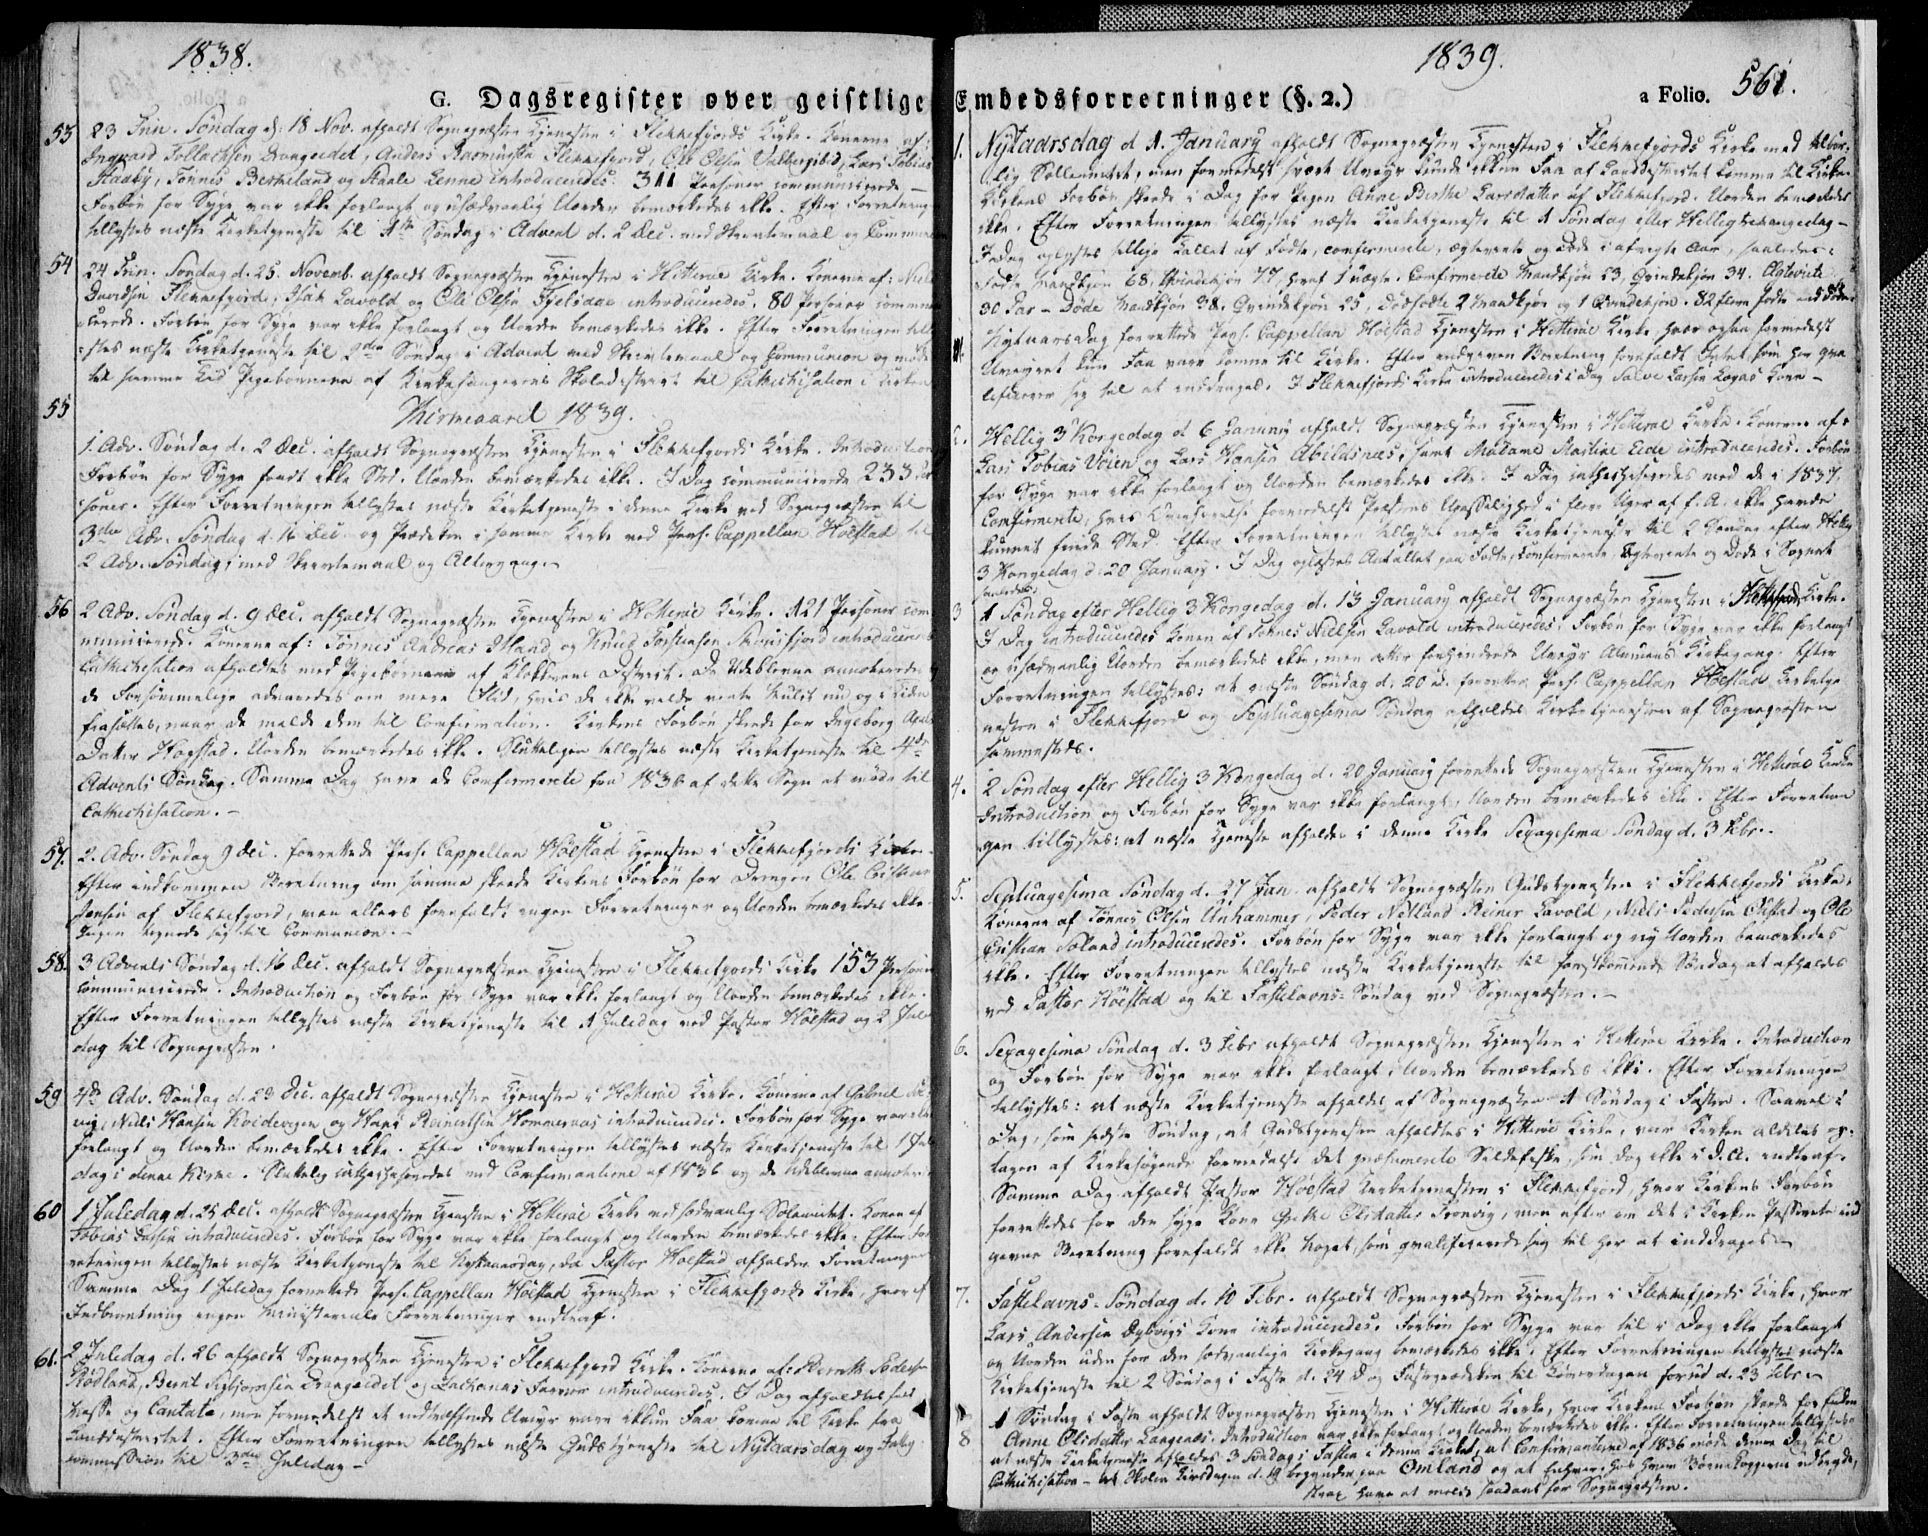 1838.
G. Dagsregister over geistlige
53 23 Trin. Søndag d: 18 Nov. afholdt Sognepræsten Tjenesten i Flekkefjords Kirke. Konerne af:
Ingvard Tollachsen Drangeidet, Anders Rasmussen Flekkefjord, Ole Olsen, Lars Tobias
Tønnes Berkeland og Staale Lenne introduceredes. 311 Personer communicerede. —
Forbøn for Syge var ikke forlangt og usædvanlig Uorden bemærkedes ikke. Efter Forretningen
tillystes næste Kirketjeneste til 1ste Søndag i Advent d. 2 Dec. med Skriftemaal og Commun
54 24 Trin. Søndag d. 25. Novemb. afholdt Sognepræsten Tjenesten i Hitterøe Kirke. Konerne af: Niels
Davidsen Flekkefjord, Isak Lavold og Ole Olsen introduceredes, 80 Personer commun
cerede. Forbøn for Syge var ikke forlangt og Uorden bemærkedes ikke. Efter Forretningen tilly
stes næste Kirketjeneste til 2den Søndag i Advent med Skriftemaal og Communion og møde
til samme Tid Pigebørnene af Kirkesangerens Skoledistrict til Cathechisation i Kirken
55 Kirkeaaret 1839.
1. Adv. Søndag d. 2 Dec. afholdt Sognepræsten Tjenesten i Flekkefjords Kirke. Introduction
Forbøn for Syge fandt ikke Sted. Uorden bemærkedes ikke. I Dag communicerede 233 Per
soner. Efter Forretningen tillystes næste Kirketjeneste i denne Kirke ved Sognepræsten til
3die Adv. Søndag d. 16 Dec. og Prædiken i samme Kirke ved Pers. Cappellan Höestad til
2 Adv. Søndag, med Skriftemaal og Altergang. —
56 2 Adv. Søndag d. 9 Dec. afholdt Sognepræsten Tjenesten i Hitterøe Kirke. 121 Personer com
municerede. Konerne af: Tønnes Andreas og Knud Torstensen introduceredes
Cathechisation afholdtes med Pigebørnene af Klokkerens District. De Udeblevne annoteredes og
de Forsømmelige advaredes om mere Flid, hvis de ikke vilde
naar de melde dem til Confirmation. Kirkens Forbøn skeede for Ingeborg
Datter Uorden bemærkedes ikke. Sluttelig tillystes næste Kirketjeneste til 4de
Advents Søndag. Samme Dag have de Confirmerede fra 1836 af dette Sogn at møde til
Cathechisation. —
57. 2. Adv. Søndag 9 Dec. forrettede Pers. Cappellan Höestad Tjenesten i Flekkefjords Kirke.
Efter indkommen Beretning om samme skeede Kirkens Forbøn for Drengen Ole
Jensen af Flekkefjord, men ellers forefaldt ingen Forretninger og Uorden bemærkedes ikke.
Ingen tegnede sig til Communion. —
58. 3 Advents Søndag d. 16 Dec. afholdt Sognepræsten Tjenesten i Flekkefjords Kirke 153 Personer
communicerede. Introduction og Forbøn for Syge var ikke forlangt og Uorden bemærkedes ikke.
Efter Forretningen tillystes næste Kirketjeneste til 1 Juledag ved Pastor Höestad og 2 Jule
dag til Sognepræsten.
59 4de Adv. Søndag d. 23 Dec. afholdt Sognepræsten Tjenesten i Hitterøe Kirke. Konerne af Gabriel
Niels Hansen og Hans introduceredes. Forbøn for Syge var ikke
forlangt og Uorden bemærkedes ikke. Efter Forretningen tillystes næste Kirketjeneste til 1 Jule
dag i denne Kirke. Sluttelig cathechiseredes med Confirmanterne af 1836 og de Udeblevne annoter
60 1 Juledag d. 25 Dec. afholdt Sognepræsten Tjenesten i Hitterøe Kirke med sædvanlig Solennitet. Konen af
Tobias introduceredes. Forbøn for Syge var ikke forlangt og Uorden bemærkedes ikke. Efter For
retningen tillystes næste Kirketjeneste til Nytaarsdag, da Pastor Höestad afholder Forretningen
Samme Dag 1 Juledag forrettede Pers. Cappellan Höestad Tjenesten i Flekkefjords Kirke, hvor
Indberetning ingen ministerielle Forretninger indtraf.
61. 2 Juledag d. 26 afholdt Sognepræsten Tjenesten i Flekkefjord Kirke. Konerne af: Berent Pedersen
Rödland, Bernt Drangeidet og introduceredes. I Dag afholdtes
Messe og Cantate, men formedelst det indtræffende Uveyr vare ikkun Faa komne til Kirke fra
Landdistrictet. Efter Forretningen tillystes næste Gudstjeneste til Nytaarsdag og
commission til 3die Juledag —
1839.
Embedsforretninger (§. 2.)
a Folio. 561.
1. Nytaarsdag d 1. January afholdt Sognepræsten Tjenesten i Flekkefjords Kirke med tilbør
lig Sollennitet, men formedelst svært Uveyr kunde ikkun Faa af Landdistrictet komme til Kirke.
Kirkens Forbøn skeede i Dag for Pigen Anne Berthe Larsdatter af Flekkefjord. Uorden bemærkedes
ikke. Efter Forretningen tillystes næste Kirketjeneste til 1 Søndag efter Hellig trekongedag —
I Dag oplystes tillige Tallet af Fødte, confirmerede, egteviede og Døde i afvigte Aar, saaledes:
Fødte Mandkjøn 68, Qvindekjøn 77, heraf 1 uægte. Confirmerede Mandkjøn 23, Qvindekjøn 34. Egteviede
30 Par — Døde Mandkjøn 38. Qvindekjøn 25, Dødfødte 2 Mandkjøn og 1 Qvindekjøn. 82 flere fødte end Døde
Nytaarsdag forrettede Pers. Cappellan Höestad Tjenesten i Hitterøe Kirke, hvor ogsaa formedelst
Uveyret kun Faa vare komne til Kirke. Efter indgiven Beretning forefaldt Intet, som her qva
lificerer sig til at inddrages. I Flekkefjords Kirke introduceredes i Dag Salve Larsen Logas Kone —
2. Hellig 3 Kongedag d 6 January afholdt Sognepræsten Tjenesten i Hitterøe Kirke. Konerne af:
Lars Tobias Vöien og Lars Hansen Abildsnæs, samt Madame Martine Eide introduceredes. Forbøn
for Syge var ikke forlangt og Uorden bemærkedes ikke. I Dag cathechiseredes med de i 1837
Confirmerede, hvis formedelst Præstens Upasselighed i flere Uger af f. A. ikke havde
kunnet finde Sted. Efter Forretningen tillystes næste Kirketjeneste til 2 Søndag efter Hellig
3 Kongedag d. 20 January. I Dag oplæstes Antallet paa Fødte, Confirmerede, Egteviede og Døde i Sognet
saaledes:
3 1 Søndag efter Hellig 3 Kongedag d. 13 January afholdt Sognepræsten Tjenesten i Flekkefjord Kirke.
I Dag introduceredes Konen af Johnes Nielsen Lavold introduceredes. Forbøn for Syge var ikke forlangt
og usædvanlig Uorden bemærkedes ikke, men atter forhindrede Uveyr Almuens Kirkegang. Efter
Forretningen tillystes: at næste Søndag d. 20 d. forretter Pers. Cappellan Höestad Kirketje
nesten i Flekkefjord og Septuagesima Søndag afholdes Kirketjenesten af Sognepræsten
sammesteds.
4. 2 Søndag efter Hellig 3 Kongedag d. 20 January forrettede Sognepræsten Tjenesten i Hitterøe Kirke
Introduction og Forbøn for Syge var ikke forlangt, Uorden bemærkedes ikke. Efter Forretnin
gen tillystes: at næste Tjeneste afholdes i denne Kirke Sexagesima Søndag d. 3 Febr.
5. Septuagesima Søndag d. 27 Jan. afholdt Sognepræsten Gudstjenesten i Flekkefjords Kirke.
Konerne af Tønnes Olsen Unhammer, Peder Nedland Reiner Lavold, Niels Pedersen og Ole
Cristian Soland introduceredes. Forbøn for Syge var ikke forlangt og ny Uorden bemærkedes
ikke. Efter Forretningen tillystes næste Kirketjeneste til førstkommende Søndag at afholdes
ved Pastor Höestad og til Fastelavns-Søndag ved Sognepræsten. —
6. Sexagesima Søndag d. 3 Febr afholdt Sognepræsten Tjenesten i Hitterøe Kirke. Introduction
og Forbøn for Syge var ikke forlangt, Uorden bemærkedes ikke. Efter Forretningen
tillystes: at næste Kirketjeneste afholdes af Sognepræsten 1 Søndag i Faste. Saavel i
Dag, som sidste Søndag, at Gudstjenesten afholdtes i Hitterøe Kirke, var Kirken aldeles
tagen af Kirkesøgende formedelst det præsumerede Sildefiske, som dog ikke i D. A. indtraf.
Samme Dag afholdt Pastor Höestad Kirketjenesten i Flekkefjord, hvor Kirkens Forbøn
forrettedes for den syge Kone Grethe Olsdatter Tronvig, men efter om det i Kirken Passerede ind
given Beretning forefaldt ikke Noget, som qvalificerede sig til her at inddrages. —
7. Fastelavns-Søndag d. 10 Febr. afholdt Sognepræsten Tjenesten i Flekkefjords Kirke, hvor
Lars Andersen Kone introduceredes. Forbøn for Syge var til i Dag ikke forlangt
og Uorden uden for den sædvanlige Kirkegang bemærkedes ikke. Efter Forretningen tillystes næste
Kirketjeneste til 2 Søndag i Faste d. 24 d og Fasteprædiken til Löverdagen forud d. 23 Febr. —
8 1 Søndag i Faste afholdt Sognepræsten Tjenesten i Hitterøe Kirke, hvor Kirkens Forbøn skeede for Enken
Anne Olsdatter Langenes. Introduction var ikke forlangt og Uorden bemærkedes ikke. Efter Forretningen tillystes
at næste Kirketjeneste afholdes 3 Søndag i Fasten i denne Kirke, at Confirmanterne af 1836 møde denne Dag til
Cathechisation — at Skolen Tirsdagen d. 19 begynder paa Omland og at Enhver, hos hvem Børnekopperne udbryde,
strax have at melde saadant for Sognepræsten.